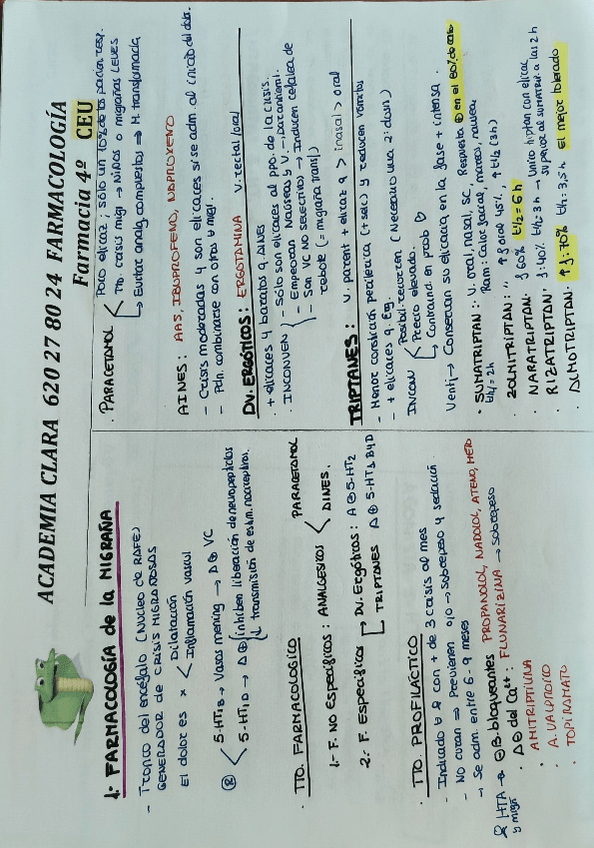 ACADEMIA CLARA 620 27 80 24 FARMACOLOGÍA
Farmacia 4º CEU
1.- FARMACOLOGÍA de la MIGRAÑA
- Tronco del encéfalo (Núcleo de RAFE)
GENERADOR DE CRISIS MIGRAÑOSAS
El dolor es x < Dilatación
Inflamación vascul
® < 5-HT1B → Vasos mening → A⊕ VC
5-HT1D → A⊕ { inhiben liberación de neuropéptidos
transmisión de estím. nociceptivos.
· TTO. FARMACOLOGICO
1.- F. NO Específicos: ANALGESICOS < PARACETAMOL
AINES.
2.- F. Específicos → Dv. Ergóticos: A⊕ 5-HT2
TRIPTANES A⊕ 5-HT1 B y D
· TTO. PROFILÁCTICO
- Indicado con + de 3 crisis al mes
- NO curan ⇒ Previenen → sobrepeso y sedación
→ Se adm. entre 6-9 meses
HTA y migr → ⊖ B. bloqueantes PROPANOLOL, NADOLOL, ATENO, METO
· A⊖ del Ca++: FLUNARIZINA → sobrepeso
· AMITRIPTILINA
· A. VALPROICO
· TOPIRAMATO
· PARACETAMOL < Poco eficaz; sólo un 10% de los pacien resp.
Tto. crisis migr → Niños o migrañas LEVES
Evitar analg compuestos ⇒ M. transformada
AINES: AAS, IBUPROFENO, NAPROXENO
- Crisis moderadas y son eficaces si se adm. al inicio del dolor.
- Pdn. combinarse con otros
DV. ERGÓTICOS: ERGOTAMINA V. rectal/oral
+ eficaces y baratos q. AINES
INCONVEN { - Sólo son eficaces al ppo. de la crisis.
- Empeoran Naúseas y V. → parenteral.
- Son VC NO selectivos → Inducen cefalea de
rebote (= migraña transf)
TRIPTANES: V. parent + eficaz q > inasal > oral
- Menor constricción periférica (+ selc) y reducen vómitos
- + eficaces q. Erg.
INCON < Posibil. recurren (Necesario una 2ª disun)
Precio elevado.
Contraind. en prob ♡
Venti → Conservan su eficacia en la fase + intensa.
· SUMATRIPTAN: V. oral, nasal, SC, Respuesta ⊕ en el 80% de casos
t1/2 = 2h Ram: Calor facial, mareos, nausea
ZOLMITRIPTAN: " ↑ f oral 45%, ↑ t1/2 (3h)
· NARATRIPTAN: f 60% t1/2 = 6h
· RIZATRIPTAN: f: 40% t1/2: 3h → Unico triptan con eficac
superior al SUMATRIP. a las 2h
· ALMOTRIPTAN. ↑ f: 70% t1/2: 3,5h El mejor tolerado